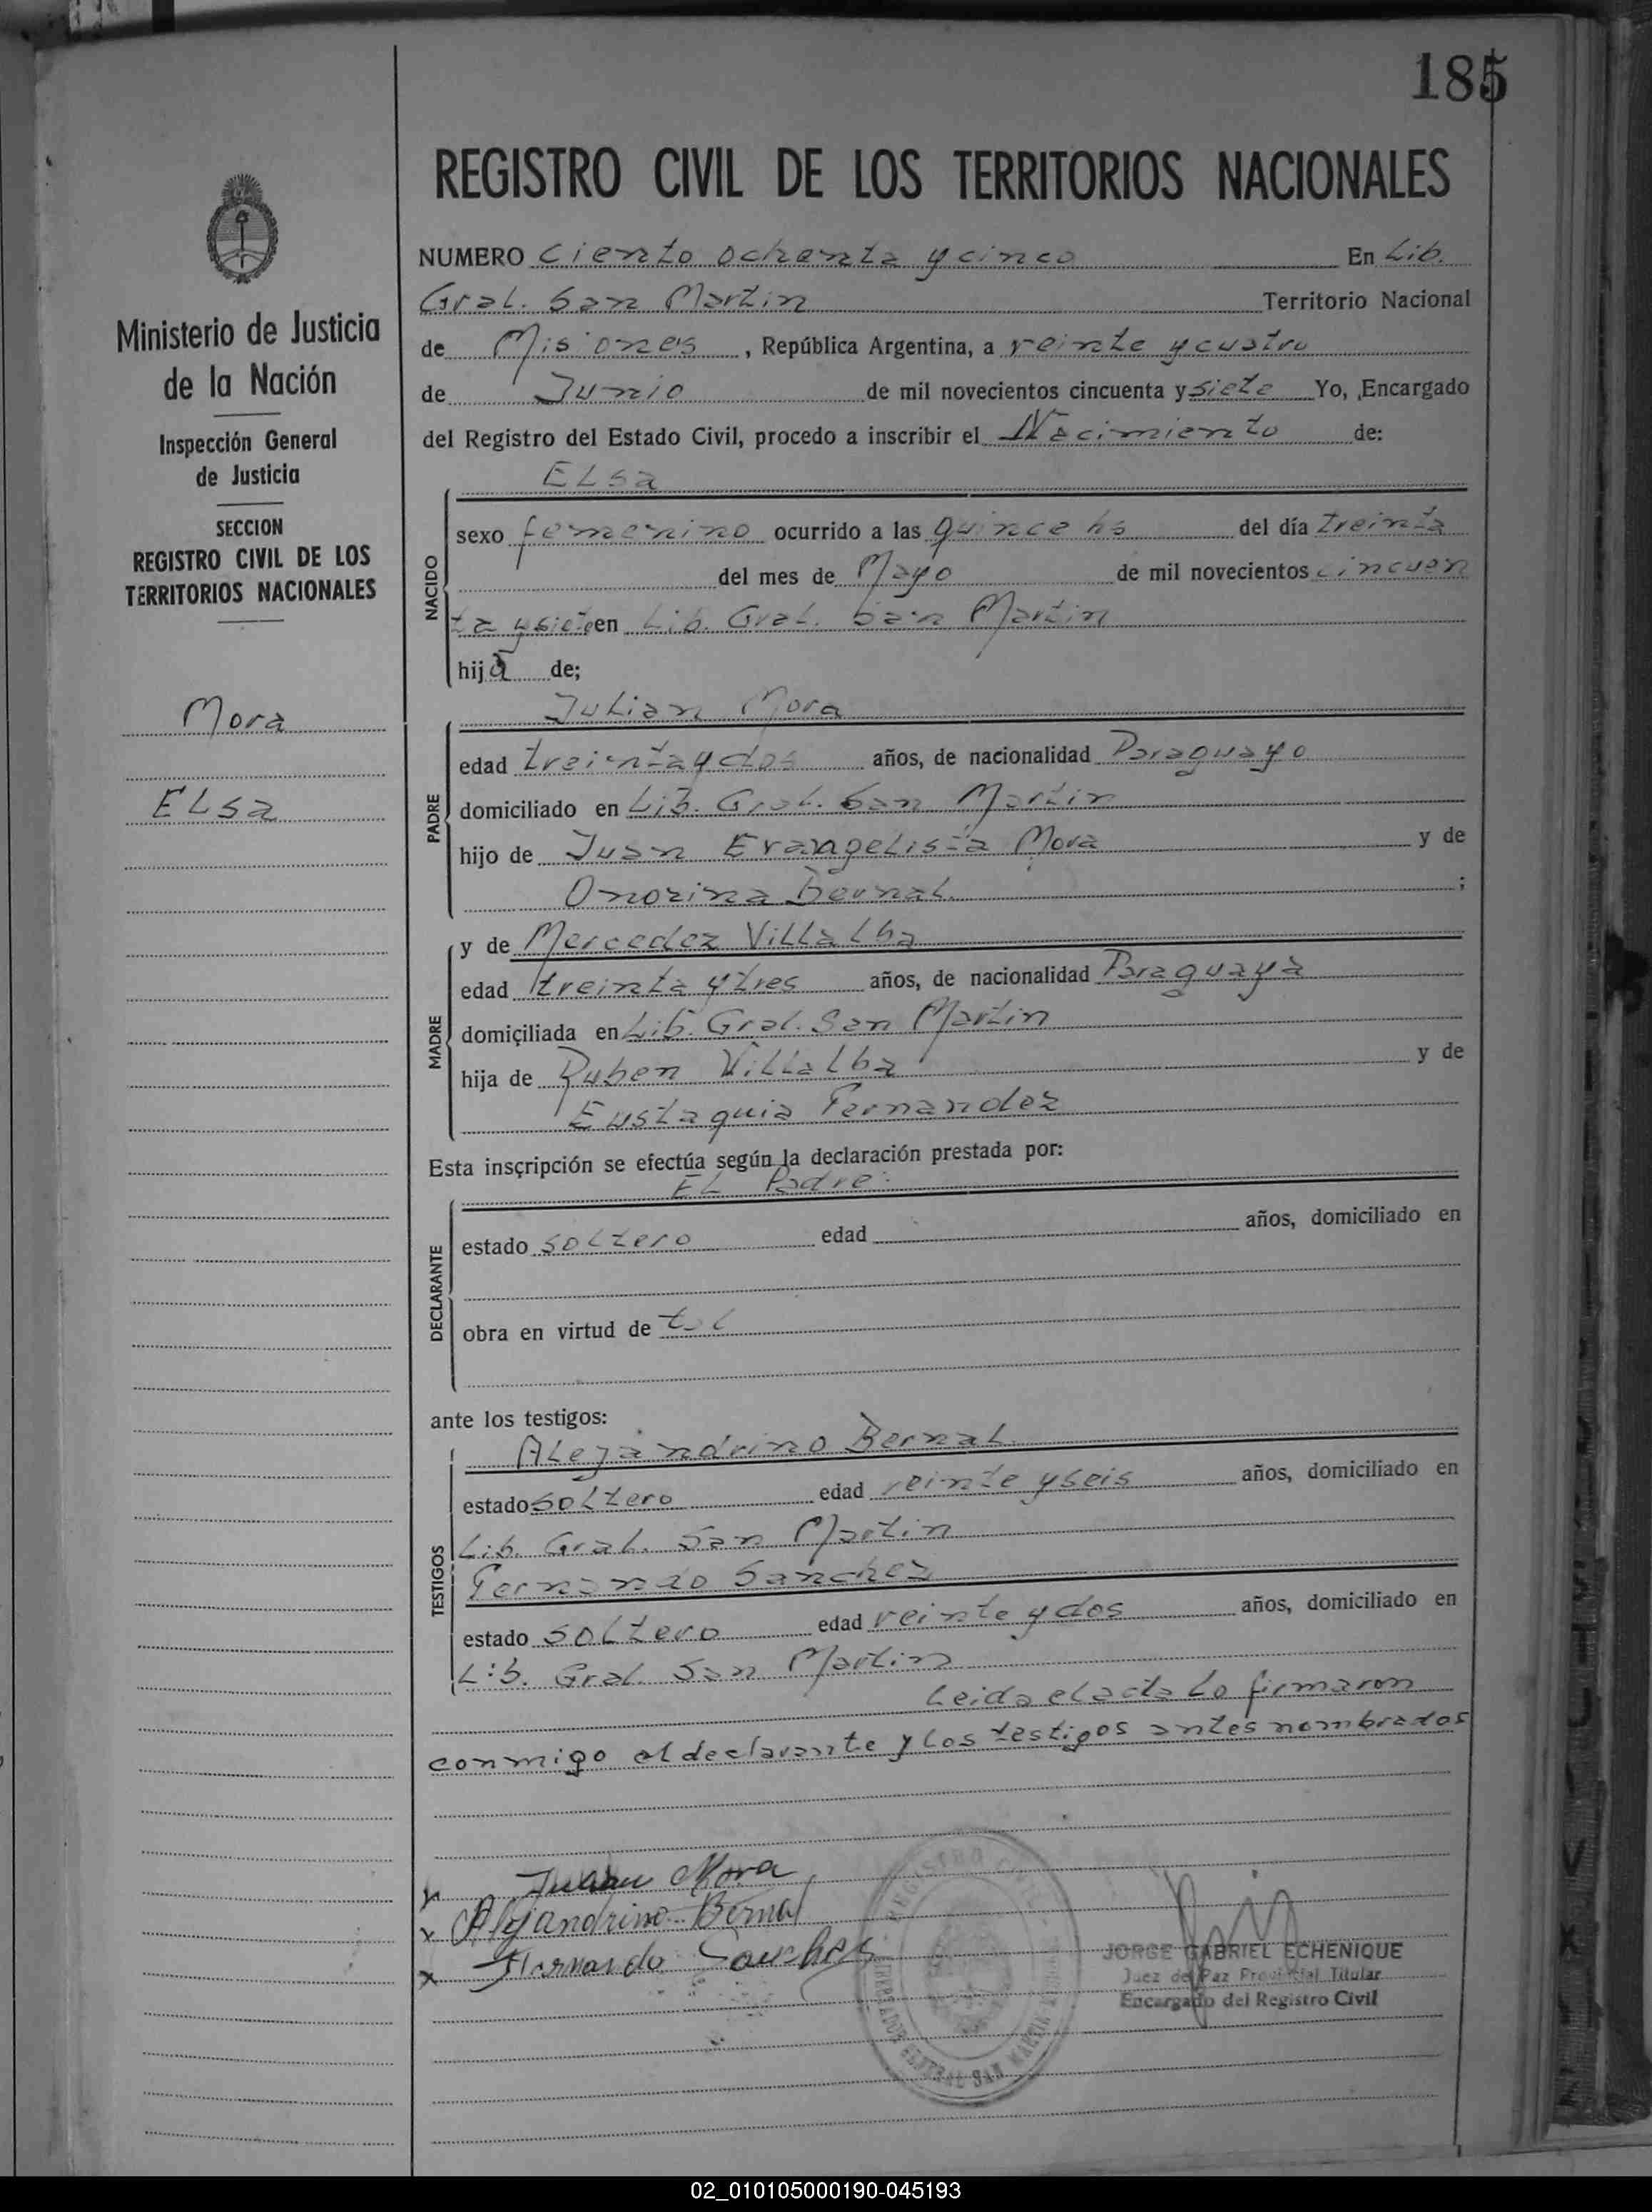 185
REGISTRO CIVIL DE LOS TERRITORIOS NACIONALES
Ministerio de Justicia
de la Nación
Inspección General
de Justicia
SECCION
REGISTRO CIVIL DE LOS
TERRITORIOS NACIONALES
Mora
ELsa
NUMERO Ciento ochenta y cinco En Lib.
Gral. San Martin Territorio Nacional
de Misiones, República Argentina, a veinte y cuatro
de Junio de mil novecientos cincuenta y siete Yo, Encargado
del Registro del Estado Civil, procedo a inscribir el Nacimiento de:
ELsa
NACIDO
sexo femenino ocurrido a las quince hs del día treinta
del mes de Mayo de mil novecientos cincuen
ta y siete en Lib. Gral. San Martin
hija de;
Julian Mora
PADRE
edad treinta y dos años, de nacionalidad Paraguayo
domiciliado en Lib. Gral. San Martin
hijo de Juan Evangelista Mora y de
Onorina Bernal. ;
MADRE
y de Mercedez Villalba
edad treinta y tres años, de nacionalidad Paraguaya
domiciliada en Lib. Gral. San Martin
hija de Ruben Villalba y de
Eustaquia Fernandez
Esta inscripción se efectúa según la declaración prestada por:
EL Padre.
DECLARANTE
estado soltero edad años, domiciliado en
obra en virtud de tal
ante los testigos:
Alejandrino Bernal
TESTIGOS
estado soltero edad veinte y seis años, domiciliado en
Lib. Gral. San Martin
Fernando Sanchez
estado soltero edad veinte y dos años, domiciliado en
Lib. Gral. San Martin
Leida el acta Lo firmaron
conmigo el declarante y Los testigos antes nombrados
x Julian Mora
x Alejandrino Bernal
x Fernando Sanches
JORGE GABRIEL ECHENIQUE
Juez de Paz Provincial Titular
Encargado del Registro Civil
02_010105000190-045193